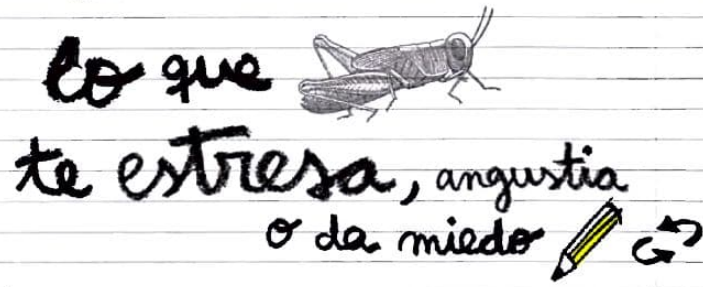 lo que
te estresa, angustia
o da miedo